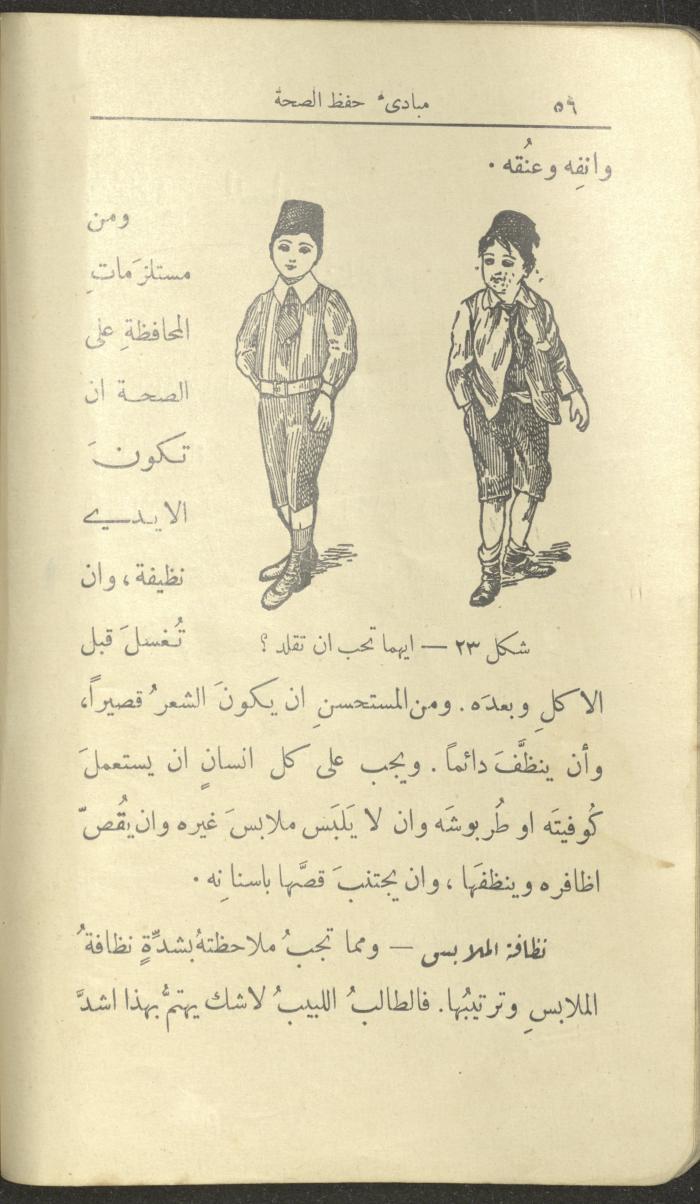 ٥٩ مبادىء حفظ الصحة
وانفِه وعنُقه .
ومن
مستلزَماتِ
المحافظةِ على
الصحة ان
تكونَ
الايدي
نظيفة ، وان
تُغسلَ قبل
شكل ٢٣ — ايهما تحب ان تقلد ؟
الاكلِ وبعدَه . ومن المستحسنِ ان يكونَ الشعرُ قصيراً،
وأن ينظَّفَ دائماً . ويجب على كل انسانٍ ان يستعملَ
كُوفيتَه او طُربوشَه وان لا يَلبَس ملابسَ غيره وان يقُصّ
اظافره وينظفَها ، وان يجتنبَ قصَّها باسنانِه .
نظافة الملابس — ومما تجبُ ملاحظتهُ بشدِّةٍ نظافةُ
الملابسِ وترتيبُها. فالطالبُ اللبيبُ لاشك يهتمُّ بهذا اشدَّ